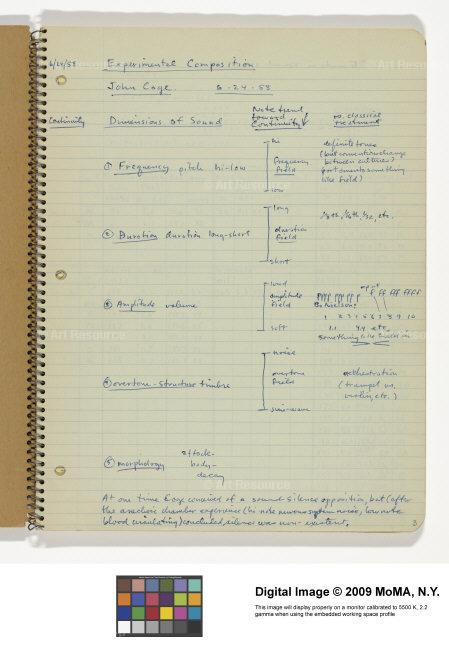 6/24/58 Experimental Composition
John Cage 6-24-58
Continuity Dimensions of Sound Note trend toward Continuity vs. classical treatment
① Frequency pitch hi-low
hi
frequency field
low
definite tones
(but conventions change
between cultures)
something
like field)
② Duration duration long-short
long
duration field
short
1/8th, 1/16th, 1/32, etc.
③ Amplitude volume
loud
amplitude field
soft
f ff fff ffff
1 2 3 4 5 6 7 8 9 10
1.1 4.4 etc.
something like
④ overtone-structure timbre
noise
overtone field
sine-wave
orchestration
(trumpet vs.
violin etc.)
⑤ morphology
attack-
body-
decay
At one time Cage conceived of a sound-silence opposition, but (after
the anechoic chamber experience (hi note nervous system noise, low note
blood circulating) concluded silence was non-existent.
3
Art Resource
Digital Image © 2009 MoMA, N.Y.
This image will display properly on a monitor calibrated to 5500 K, 2.2
gamma when using the embedded working space profile